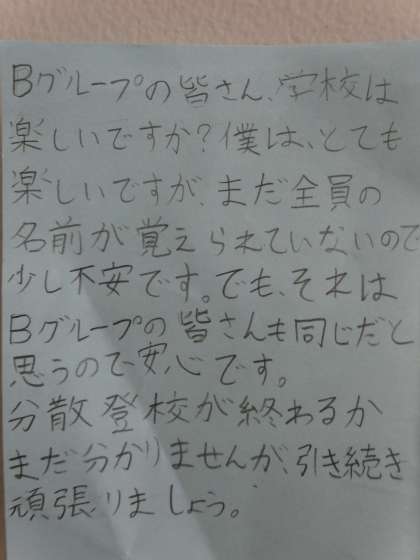 Bグループの皆さん、学校は
楽しいですか?僕は、とても
楽しいですが、まだ全員の
名前が覚えられていないので
少し不安です。でも、それは
Bグループの皆さんも同じだと
思うので安心です。
分散登校が終わるか
まだ分かりませんが、引き続き
頑張りましょう。